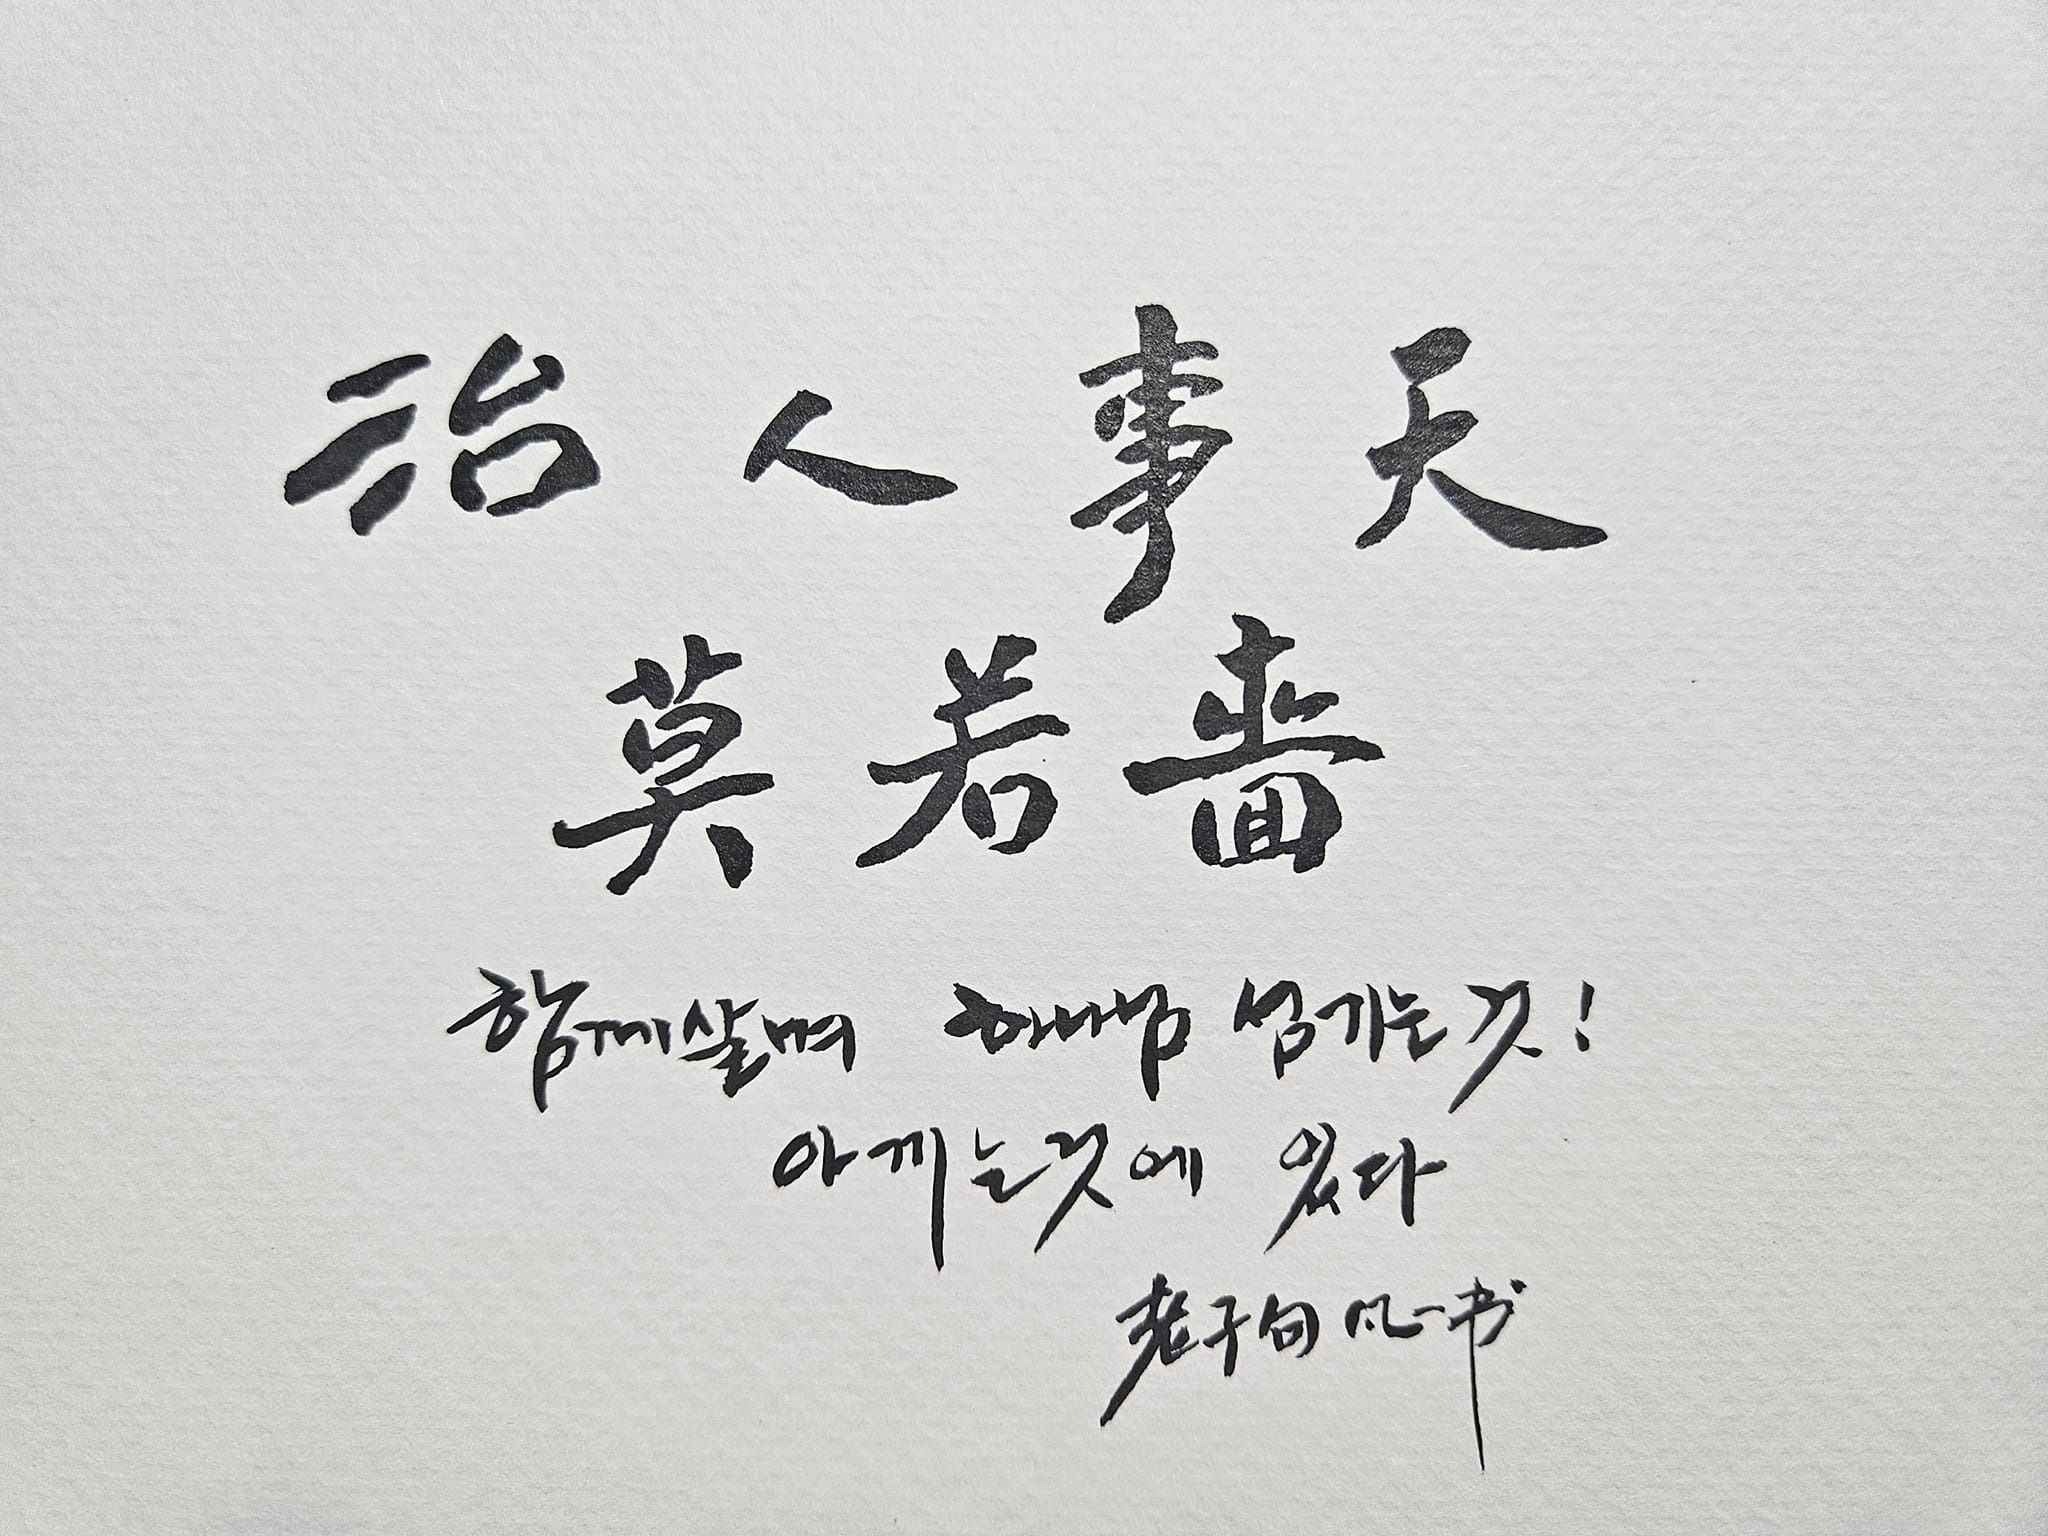 治人事天
莫若嗇
함께살며 하나님 섬기는것!
아끼는것에 있다
老子句 凡一书